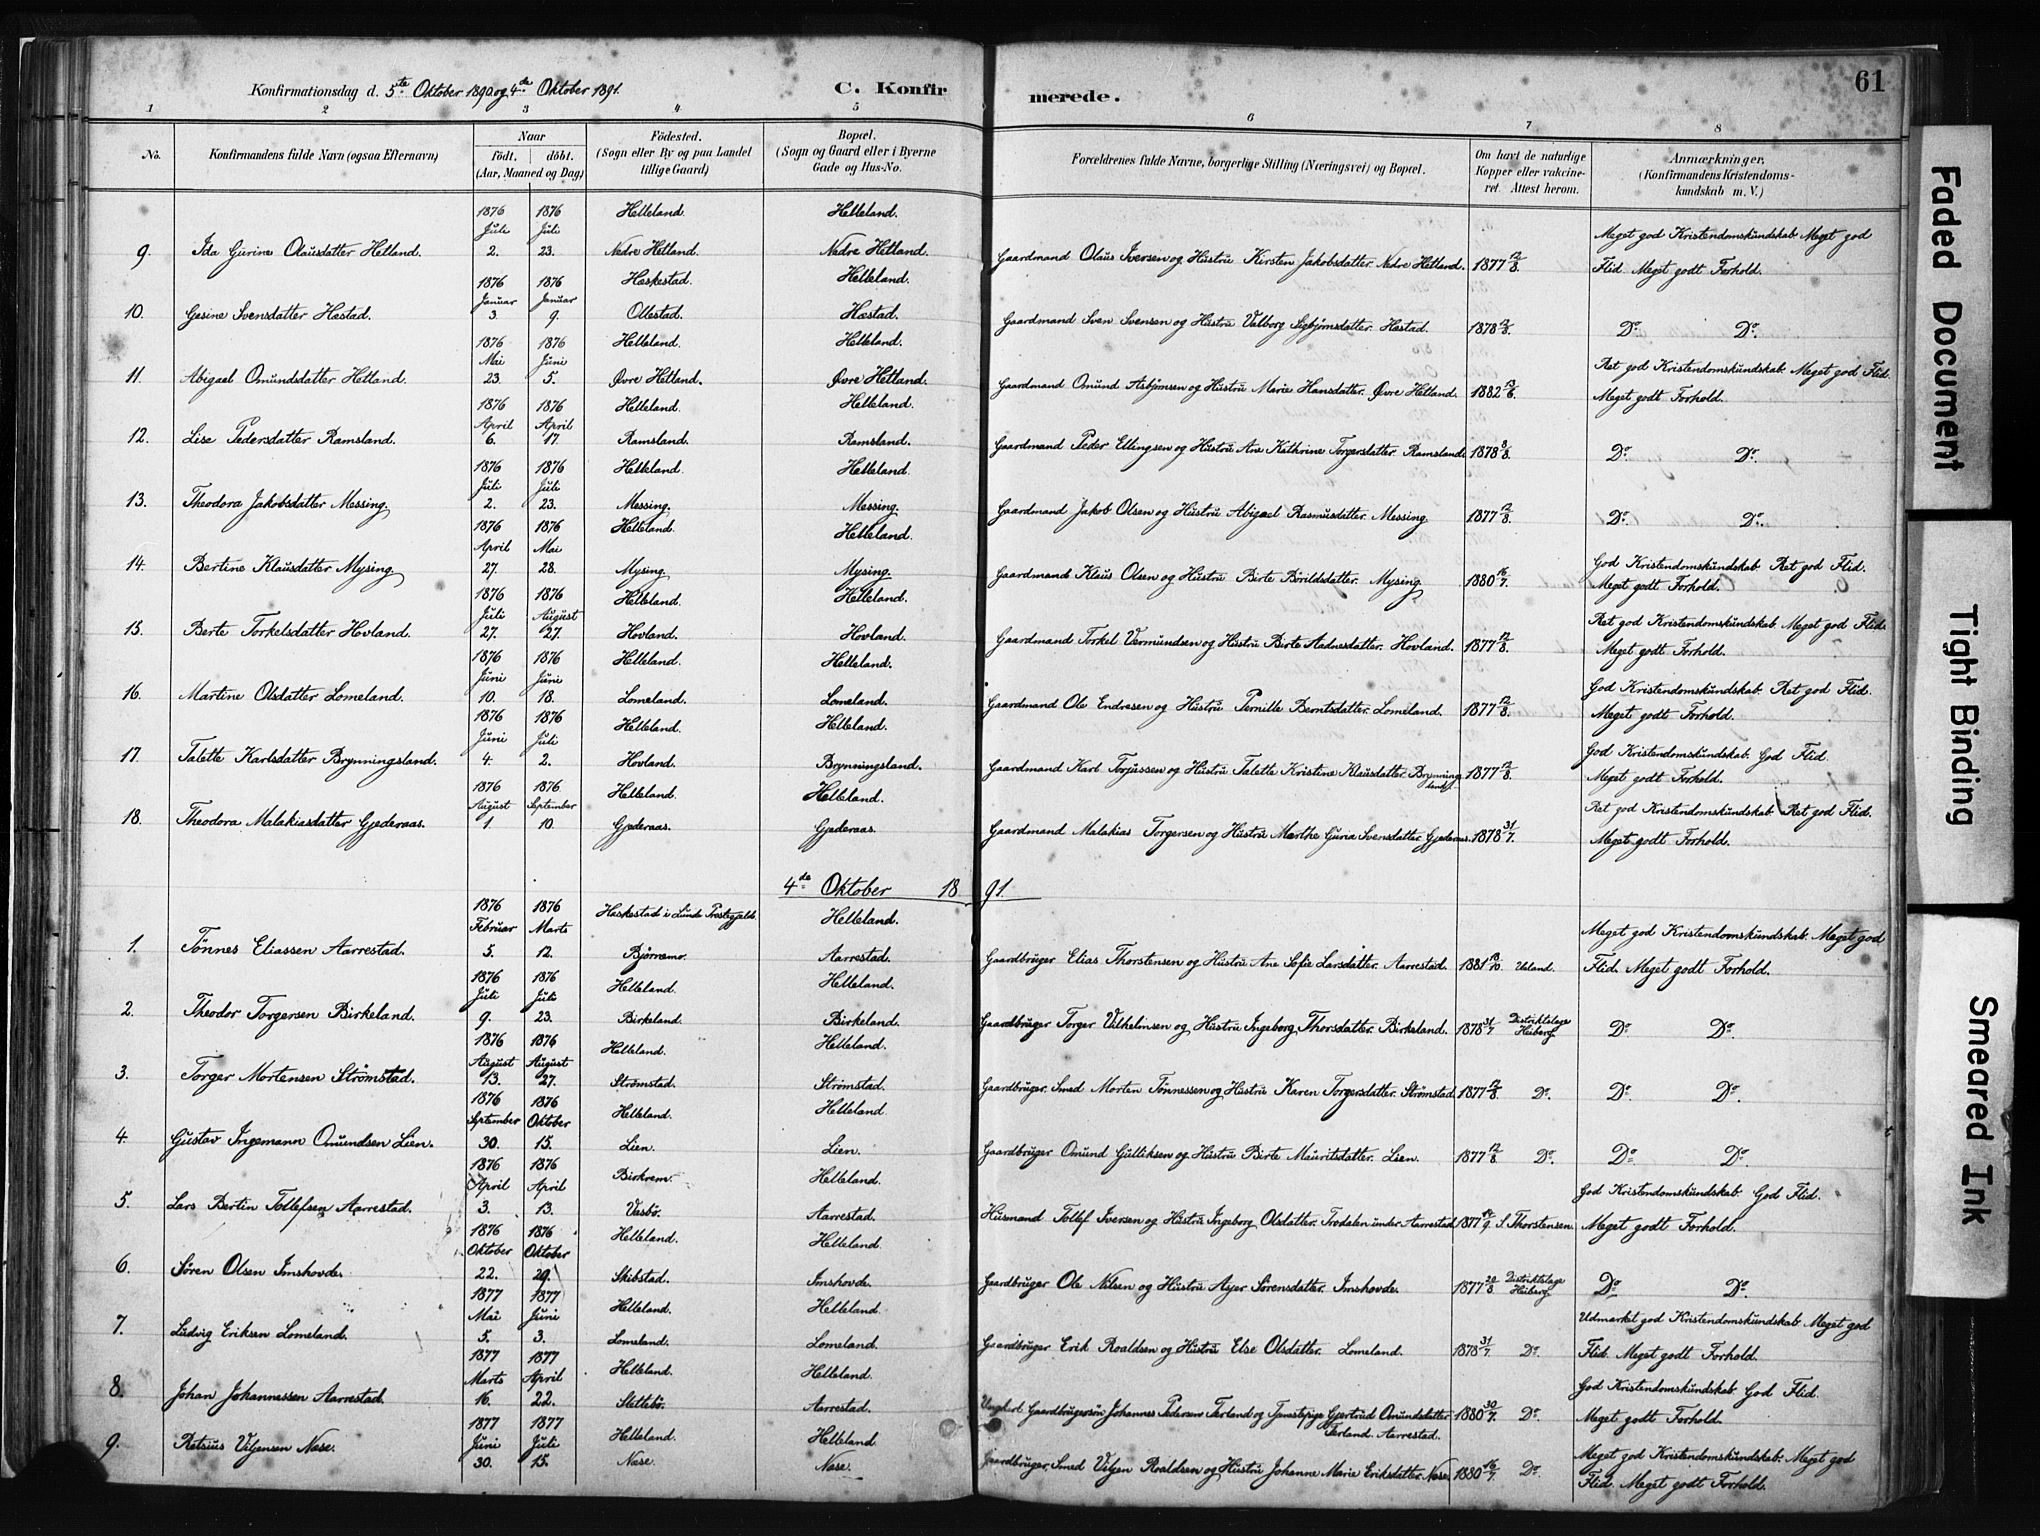 Konfirmationsdag d. 5te Oktober 1890 og 4de Oktober 1891.
C. Konfirmerede.
61
1 2 3 4 5 6 7 8
No.
Konfirmandens fulde Navn (ogsaa Efternavn)
Naar
født. døbt.
(Aar, Maaned og Dag)
Fødested.
(Sogn eller By og paa Landet
tillige Gaard)
Bopæl.
(Sogn og Gaard eller i Byerne
Gade og Hus-No.
Forældrenes fulde Navne, borgerlige Stilling (Næringsvei) og Bopæl.
Om havt de naturlige
Kopper eller vakcine-
ret. Attest herom.
Anmærkninger.
(Konfirmandens Kristendoms-
kundskab m. V.)
1876 1876 Helleland. Helleland.
Juli Juli Meget god Kristendomskundskab. Meget god
9. Ida Gurine Olausdatter Hetland. 2. 23. Nedre Hetland. Nedre Hetland. Gaardmand Olaus Iversen og Hustru Kirsten Jakobsdatter. Nedre Hetland. 1877 12/8. Flid. Meget godt Forhold.
1876 1876 Heskestad. Helleland.
Januar Januar
10. Gesine Svensdatter Hæstad. 3. 9. Ollestad. Hæstad. Gaardmand Sven Svensen og Hustru Valborg Sigbjørnsdatter. Hæstad. 1878 12/8. Do. Do.
1876 1876 Helleland. Helleland.
Mai Juni Ret god Kristendomskundskab. Meget god Flid.
11. Abigael Omundsdatter Hetland. 23. 5. Øvre Hetland. Øvre Hetland. Gaardmand Omund Asbjørnsen og Hustru Marie Hansdatter. Øvre Hetland. 1882 13/6. Meget godt Forhold.
1876 1876 Helleland. Helleland.
April April
12. Lise Pedersdatter Ramsland. 6. 17. Ramsland. Ramsland. Gaardmand Peder Ellingsen og Hustru Ane Kathrine Torgersdatter. Ramsland. 1878 8/8. Do. Do.
1876 1876 Helleland. Helleland.
Juli Juli
13. Theodora Jakobsdatter Messing. 2. 23. Messing. Messing. Gaardmand Jakob Olsen og Hustru Abigael Rasmusdatter. Messing. 1877 12/8. Do. Do.
1876 1876 Helleland. Helleland.
April Mai God Kristendomskundskab. Ret god Flid.
14. Bertine Klausdatter Mysing. 27. 28. Mysing. Mysing. Gaardmand Klaus Olsen og Hustru Birte Børildsdatter. Mysing. 1880 16/7. Meget godt Forhold.
1876 1876 Helleland. Helleland.
Juli August Ret god Kristendomskundskab. Meget god Flid.
15. Berte Torkelsdatter Hovland. 27. 27. Hovland. Hovland. Gaardmand Torkel Vermundsen og Hustru Birte Aadnesdatter. Hovland. 1877 12/8. Meget godt Forhold.
1876 1876 Helleland. Helleland.
Juni Juni God Kristendomskundskab. Ret god Flid.
16. Martine Olsdatter Lomeland. 10. 18. Lomeland. Lomeland. Gaardmand Ole Endresen og Hustru Pernille Berntsdatter. Lomeland. 1877 12/8. Meget godt Forhold.
1876 1876 Helleland. Helleland.
Juni Juli God Kristendomskundskab. God Flid.
17. Talette Karlsdatter Brynningsland. 4. 2. Hovland. Brynningsland. Gaardmand Karl Torjussen og Hustru Talette Kristine Klausdatter. Brynningsland. 1877 12/8. Meget godt Forhold.
1876 1876 Helleland. Helleland.
August September Ret god Kristendomskundskab. Ret god Flid.
18. Theodora Malakiasdatter Gjederaas. 1. 10. Gjederaas. Gjederaas. Gaardmand Malakias Torgersen og Hustru Marthe Guria Svensdatter. Gjederaas. 1878 31/7. Meget godt Forhold.
4de Oktober 1891.
1876 1876 Heskestad i Lunde Prestegjeld. Helleland.
Februar Marts Meget god Kristendomskundskab. Meget god
1. Tønnes Eliassen Aarrestad. 5. 12. Bjørnemo. Aarrestad. Gaardbruger Elias Thorstensen og Hustru Ane Sofie Larsdatter. Aarrestad. 1881 18/10 Ueland. Flid. Meget godt Forhold.
1876 1876 Helleland. Helleland.
Juli Juli
2. Theodor Torgersen Birkeland. 9. 23. Birkeland. Birkeland. Gaardbruger Torger Vilhelmsen og Hustru Ingeborg Thorsdatter. Birkeland. 1878 31/7 Distriktslæge Heiberg Do. Do.
1876 1876 Helleland. Helleland.
August August
3. Torger Mortensen Strømstad. 13. 27. Strømstad. Strømstad. Gaardbruger, Smed Morten Tønnessen og Hustru Karen Torgersdatter. Strømstad. 1877 12/8. Do. Do. Do.
1876 1876 Helleland. Helleland
September Oktober
4. Gustav Ingemann Omundsen Lien. 30. 15. Lien. Lien. Gaardbruger Omund Gulliksen og Hustru Birte Mauritsdatter. Lien. 1877 12/8 Do. Do. Do.
1876 1876 Birkrem. Helleland.
April April God Kristendomskundskab. God Flid.
5. Lars Bertin Tollefsen Aarrestad. 3. 13. Vasbø. Aarrestad. Husmand Tollef Iversen og Hustru Ingeborg Olsdatter. Trodalen under Aarrestad. 1877 14/9. S. Thorstensen. Meget godt Forhold.
1876 1876 Helleland. Helleland.
Oktober Oktober
6. Søren Olsen Imshovde. 22. 29. Skibstad. Imshovde. Gaardbruger Ole Nilsen og Hustru Asjer Sørensdatter. Imshovde. 1877 20/8 Distriktslæge Heiberg Do. Do.
1877 1877 Helleland. Helleland
Mai Juni Udmærket god Kristendomskundskab. Meget god
7. Ludvig Eriksen Lomeland. 5. 3. Lomeland. Lomeland. Gaardbruger Erik Roaldsen og Hustru Else Olsdatter. Lomeland. 1878 31/7. Do. Flid. Meget godt Forhold.
1877 1877 Helleland. Helleland.
Marts April God Kristendomskundskab. God Flid.
8. Johan Johannessen Aarrestad. 16. 22. Slettebø. Aarrestad. Ungkarl Gaardbrugersøn Johannes Pedersen Terland og Tjenestepige Gjertrud Omundsdatter Terland. Aarrestad. 1880 30/7. Do. Meget godt Forhold.
1877 1877 Helleland. Helleland
Juni Juli Meget god Kristendomskundskab. Meget god
9. Retsius Viljensen Næse. 30. 15. Næse. Næse. Gaardbruger, Smed Viljen Roaldsen og Hustru Johanne Marie Eriksdatter. Næse. 1880 16/7. Do. Flid. Meget godt Forhold.
Faded Document
Tight Binding
Smeared Ink